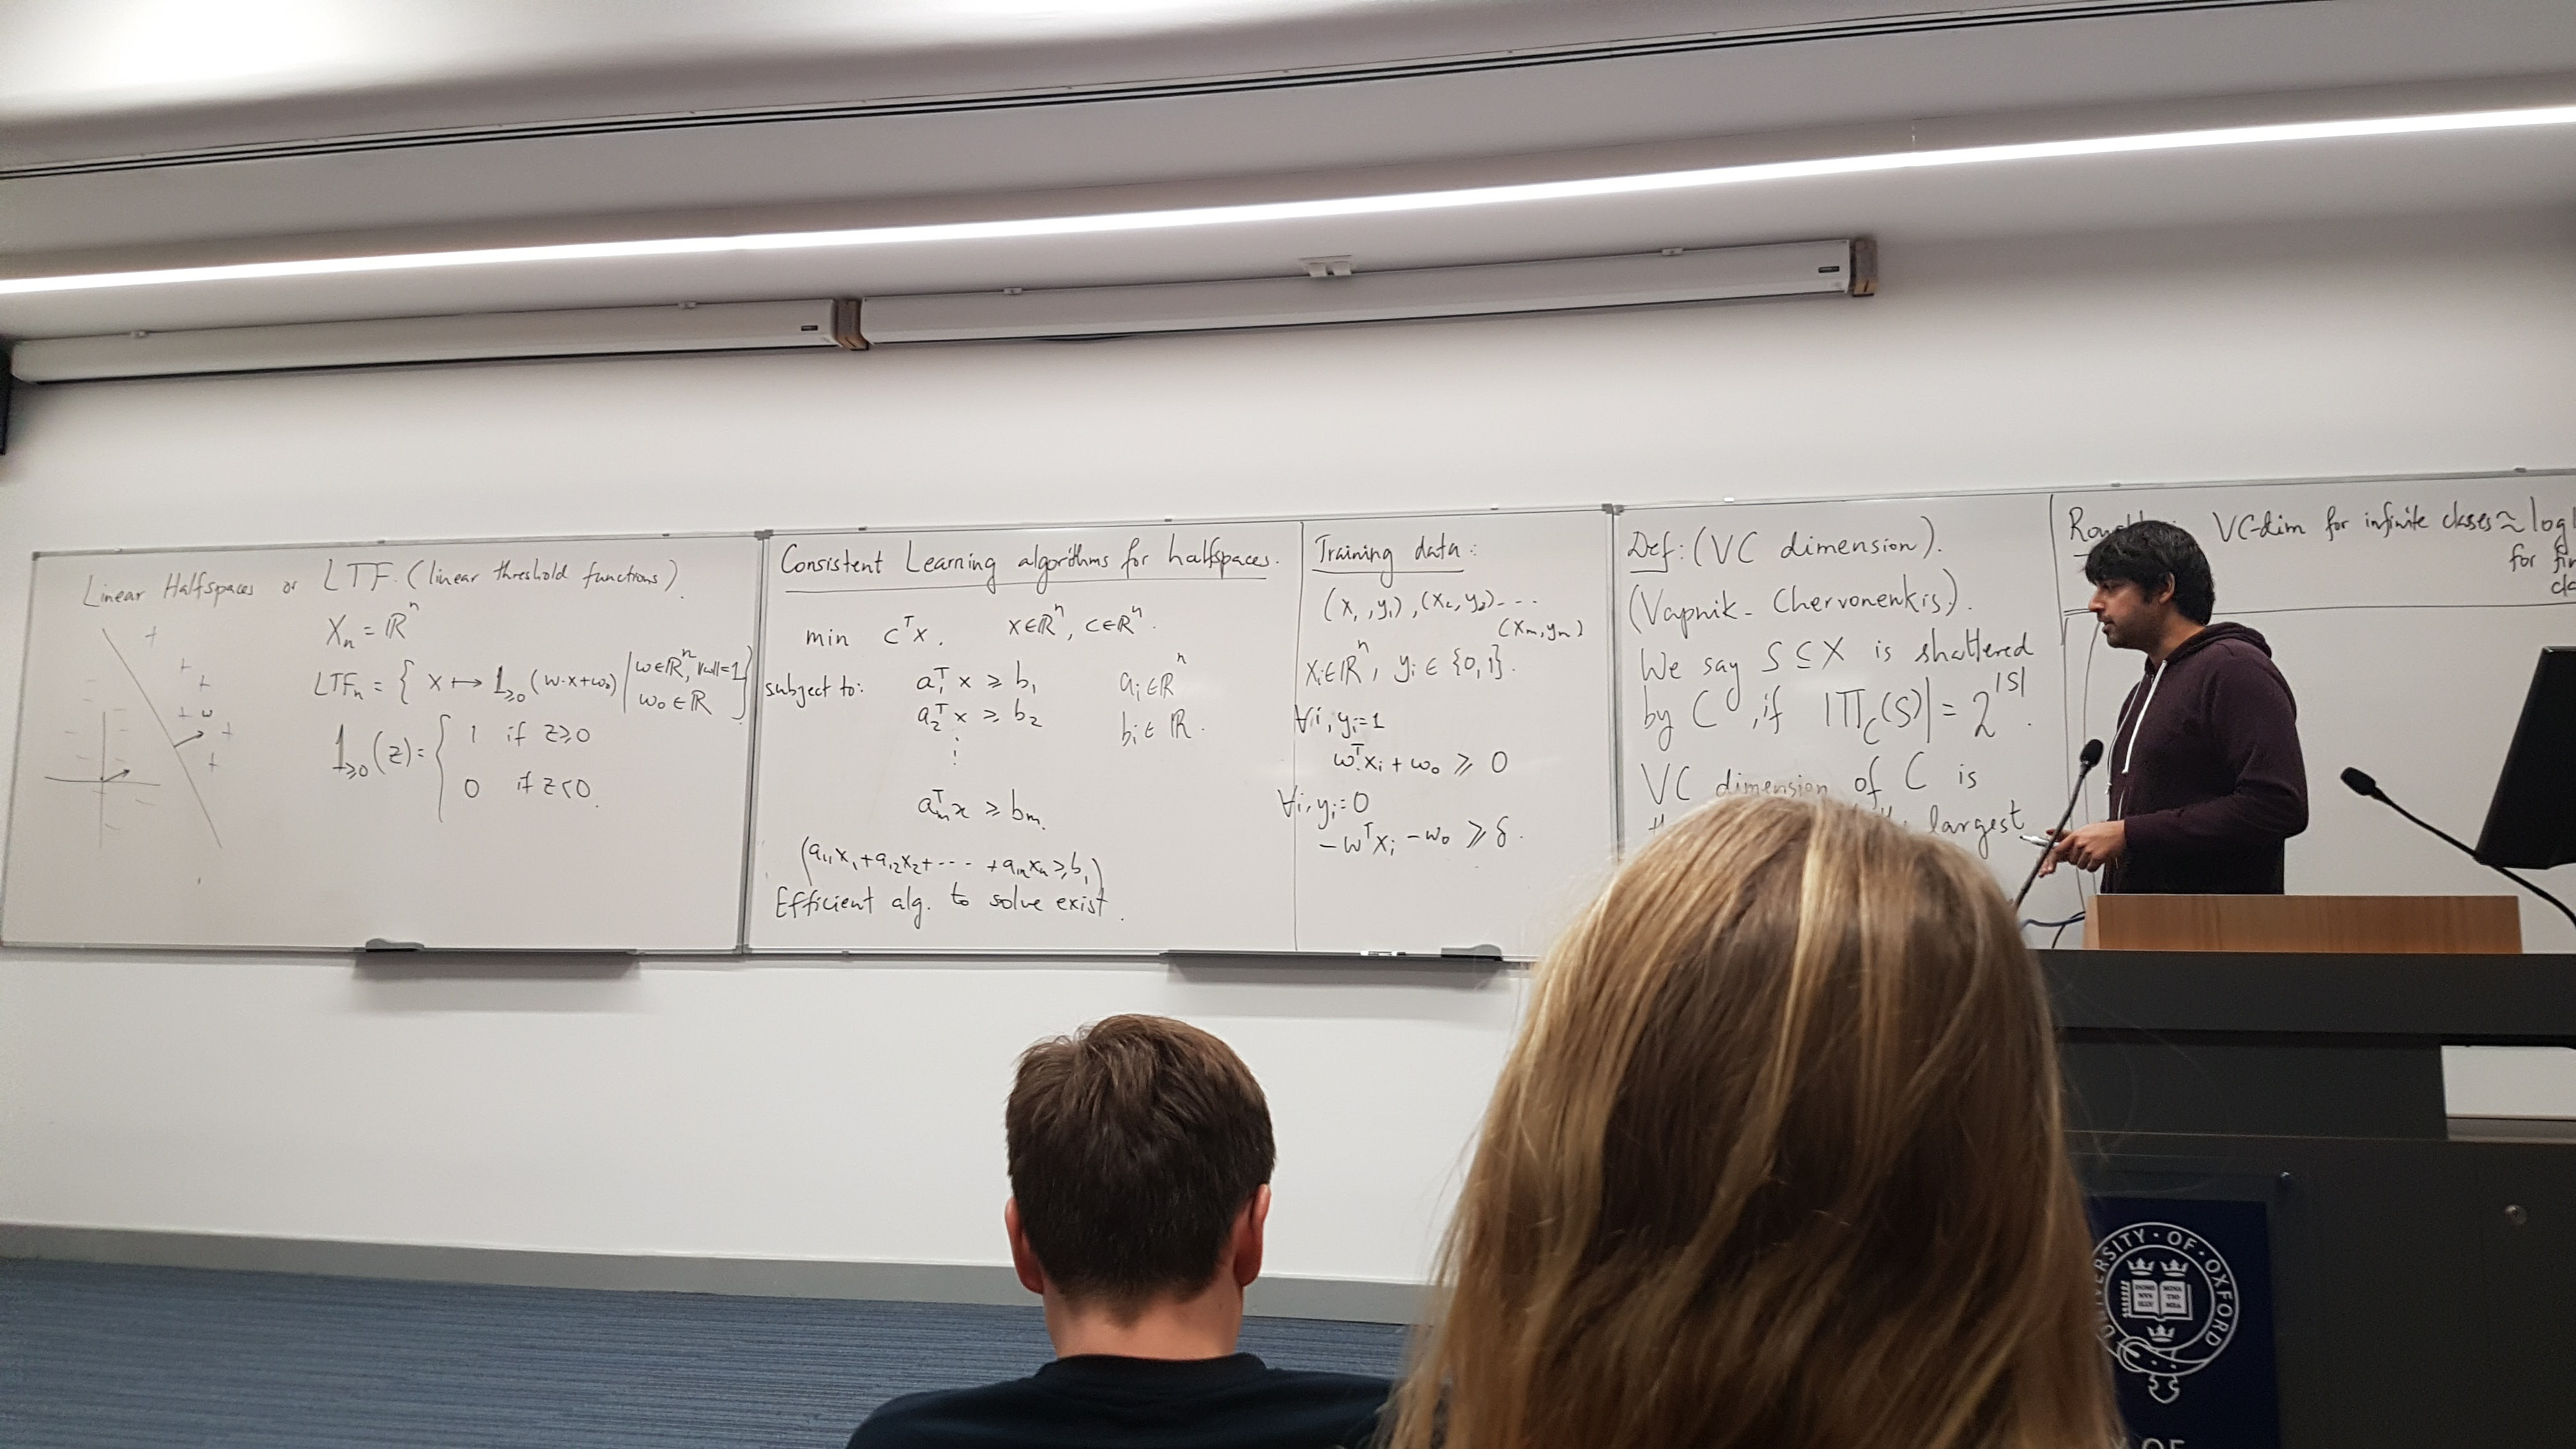 Linear Halfspaces or LTF. (linear threshold functions).
Xₙ = ℝⁿ
LTFₙ = { x ↦ 1≥0 (w·x+w₀) | w∈ℝⁿ, ‖w‖=1
w₀ ∈ ℝ }
1≥0 (z) = { 1 if z≥0
0 if z<0.
+
+
+
+ w
+
+
Consistent Learning algorithms for halfspaces.
min cᵀx. x∈ℝⁿ, c∈ℝⁿ.
subject to: a₁ᵀx ≥ b₁ aᵢ∈ℝⁿ
a₂ᵀx ≥ b₂ bᵢ∈ℝ.
⋮
aₘᵀx ≥ bₘ.
(a₁₁x₁+a₁₂x₂+---- +a₁ₙxₙ≥b₁)
Efficient alg. to solve exist.
Training data:
(x₁,y₁),(x₂,y₂)----
(xₘ,yₘ)
xᵢ∈ℝⁿ, yᵢ∈{0,1}.
∀i, yᵢ=1
wᵀxᵢ+w₀ ≥ 0
∀i, yᵢ=0
-wᵀxᵢ-w₀ ≥ δ.
Def: (VC dimension).
(Vapnik-Chervonenkis).
We say S⊆X is shattered
by C, if |Π_C(S)| = 2^|S|.
VC dimension of C is
largest
VC-dim for infinite classes ≈ log
for
UNIVERSITY·OF·OXFORD
DOMI MINA
NVS TIO
ILLV MEA
OF